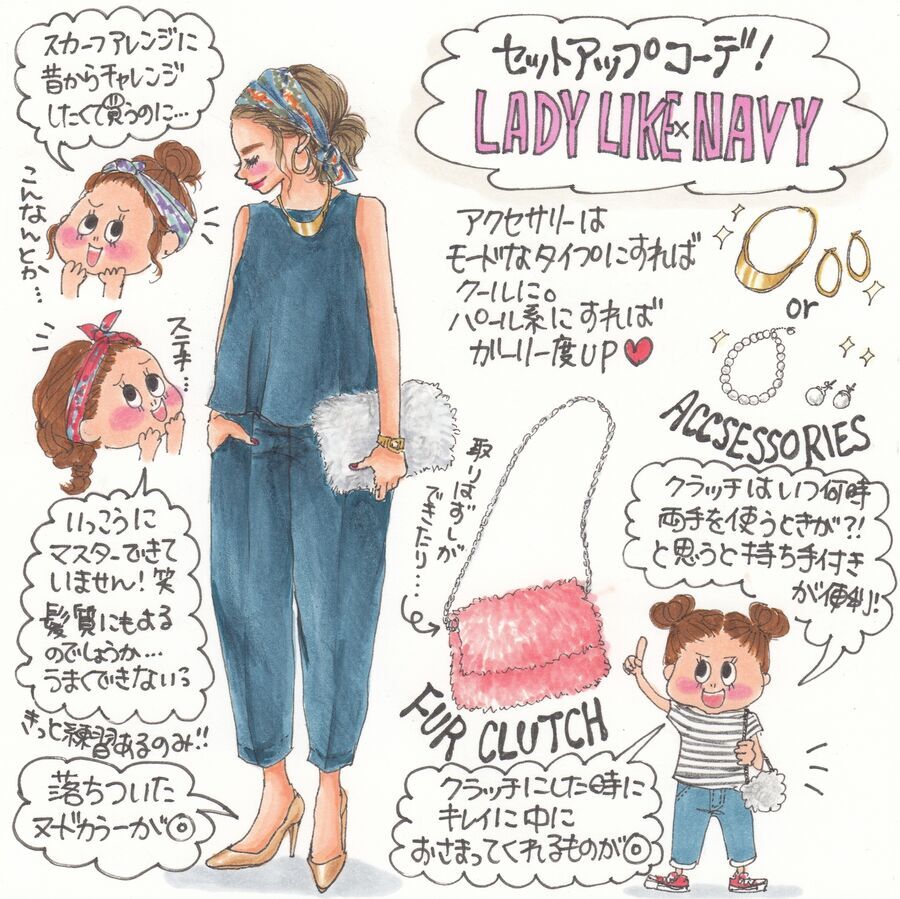 スカーフアレンジに
昔からチャレンジ
したくて買うのに…
こんなんとか…
ステキ…
いっこうに
マスターできて
いません!笑
髪質にもよる
のでしょうか…
うまくできないっ
きっと練習あるのみ!!
落ちついた
ヌードカラーが◎
セットアップコーデ!
LADY LIKE×NAVY
アクセサリーは
モードなタイプにすれば
クールに。
パール系にすれば
ガーリー度UP♥
or
ACCSESSORIES
取りはずしが
できたり…
FUR CLUTCH
クラッチはいつ何時
両手を使うときが?!
と思うと持ち手付き
が便利!
クラッチにした時に
キレイに中に
おさまってくれるものが◎